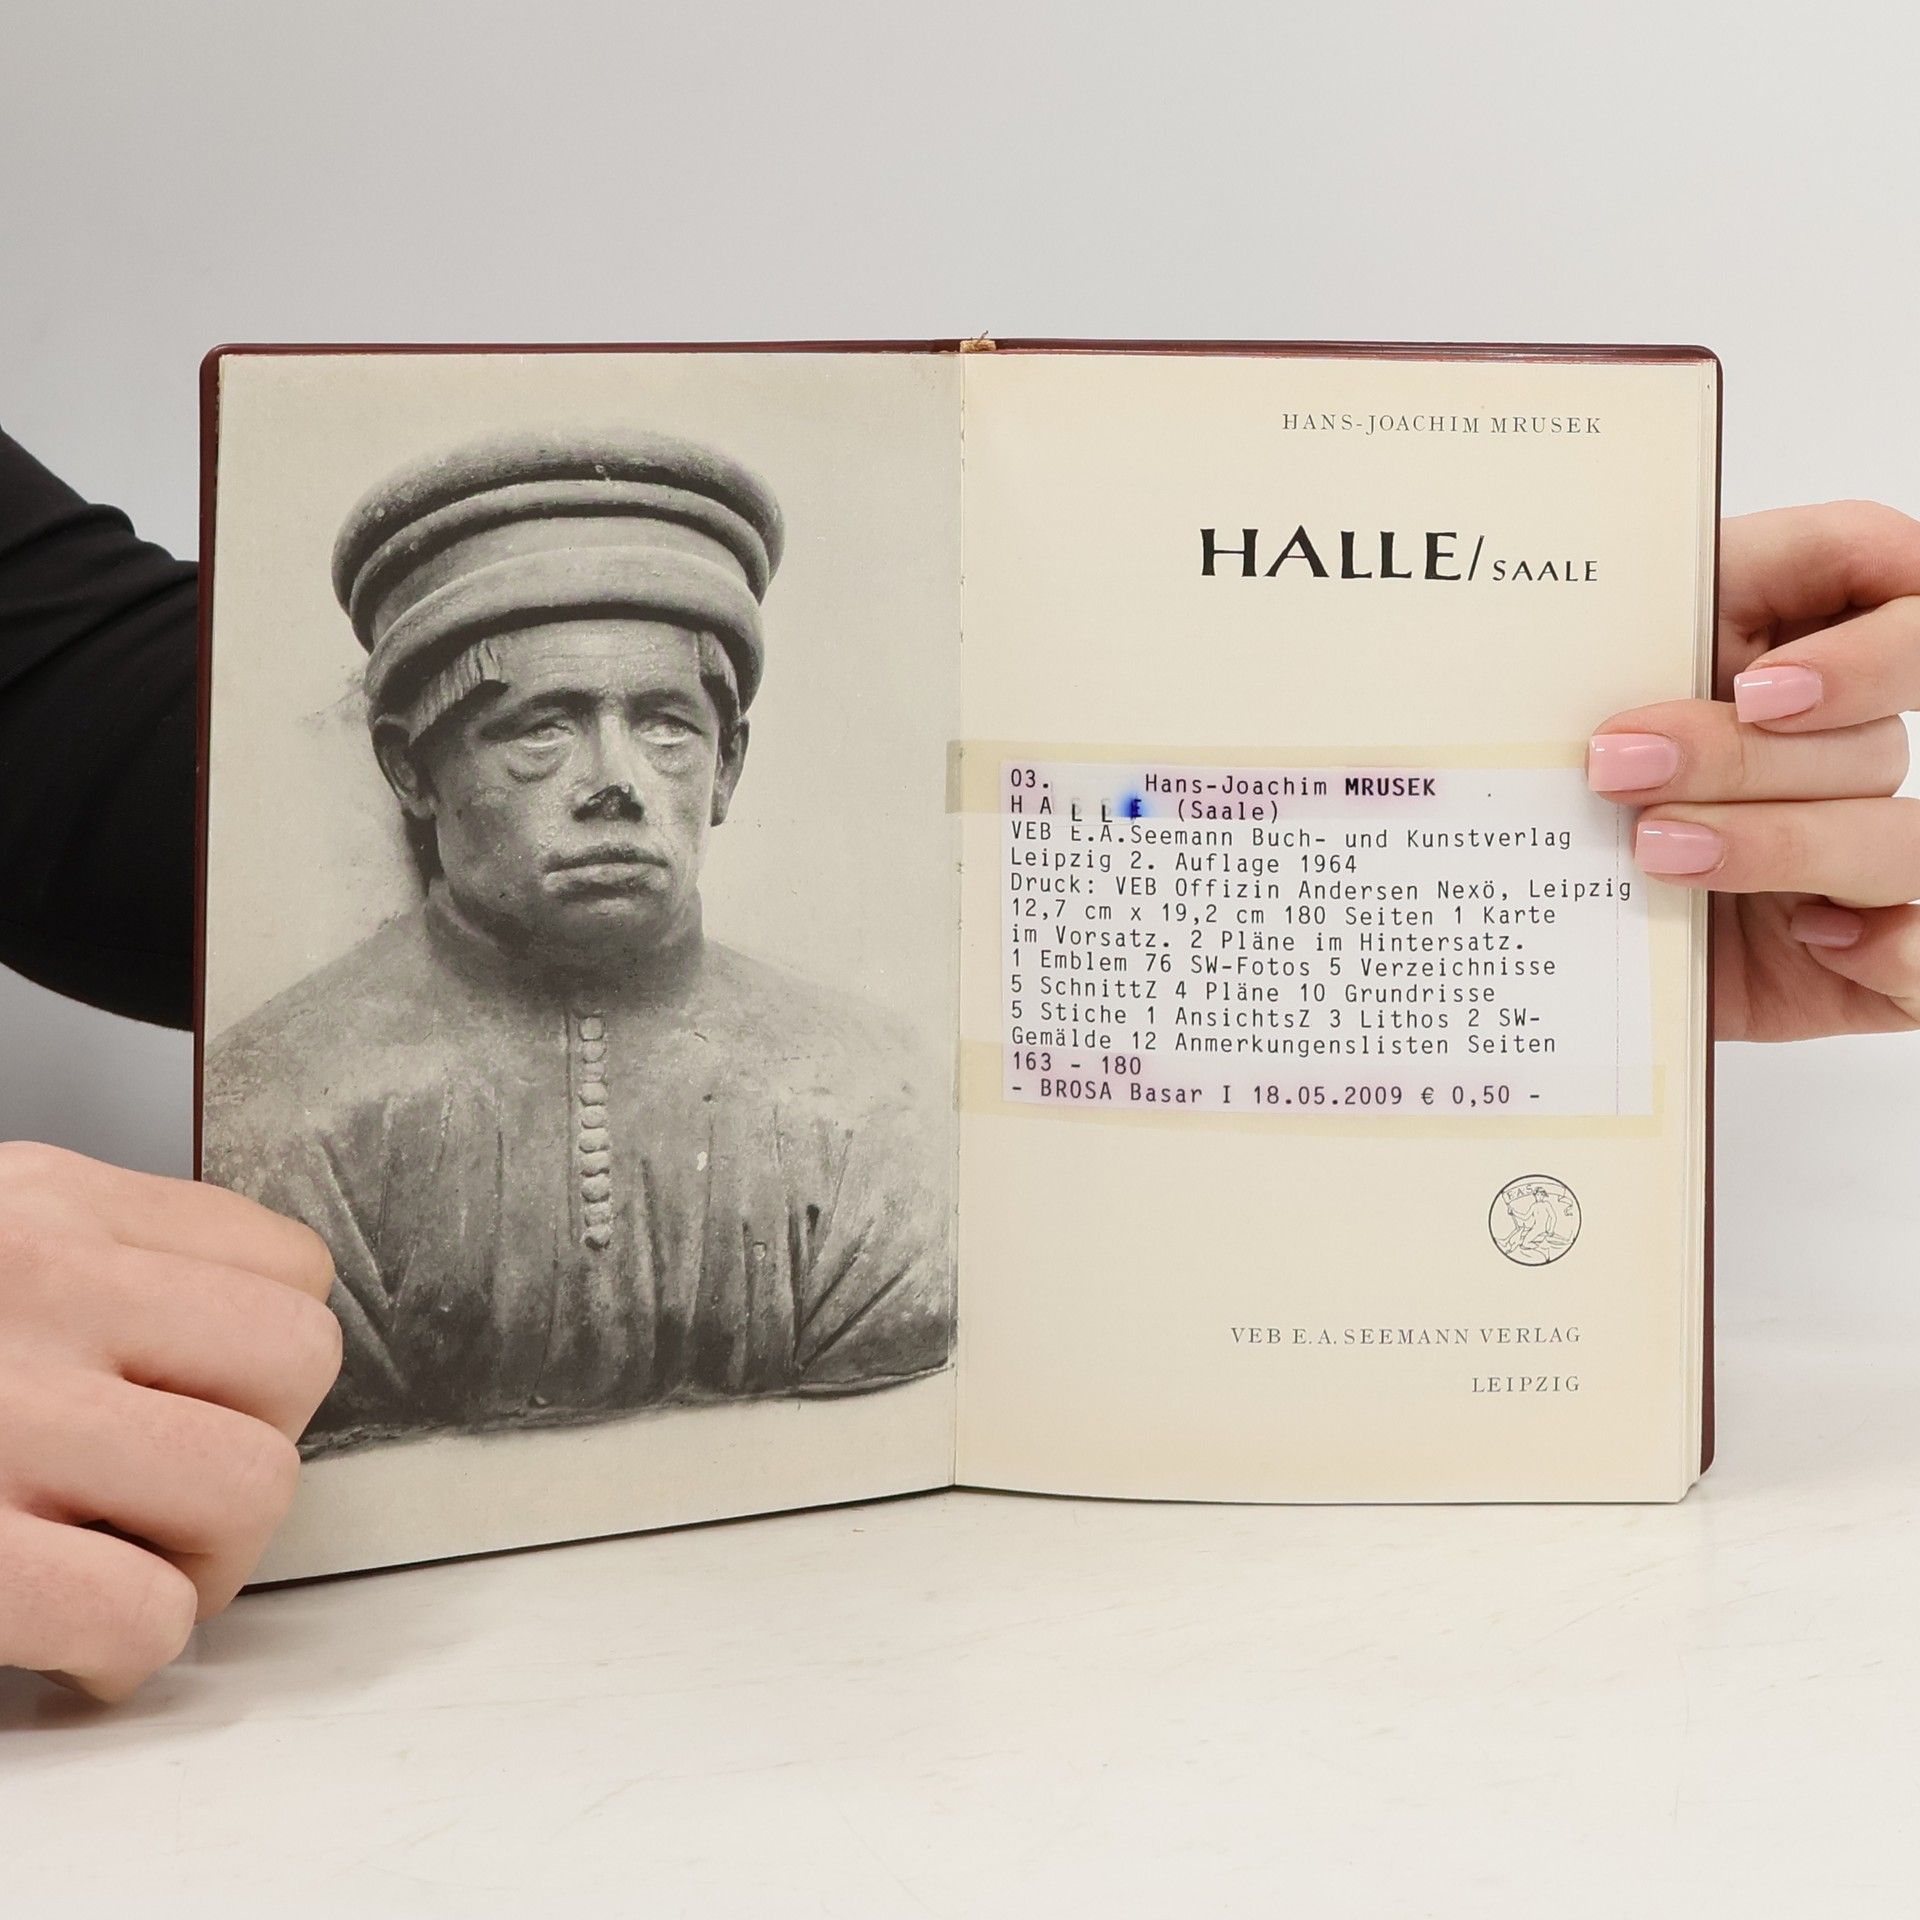 HANS-JOACHIM MRUSEK
HALLE/SAALE
03. Hans-Joachim MRUSEK
H A L L E (Saale)
VEB E.A.Seemann Buch- und Kunstverlag
Leipzig 2. Auflage 1964
Druck: VEB Offizin Andersen Nexö, Leipzig
12,7 cm x 19,2 cm 180 Seiten 1 Karte
im Vorsatz. 2 Pläne im Hintersatz.
1 Emblem 76 SW-Fotos 5 Verzeichnisse
5 SchnittZ 4 Pläne 10 Grundrisse
5 Stiche 1 AnsichtsZ 3 Lithos 2 SW-
Gemälde 12 Anmerkungenslisten Seiten
163 - 180
- BROSA Basar I 18.05.2009 € 0,50 -
E·A·S
VEB E. A. SEEMANN VERLAG
LEIPZIG